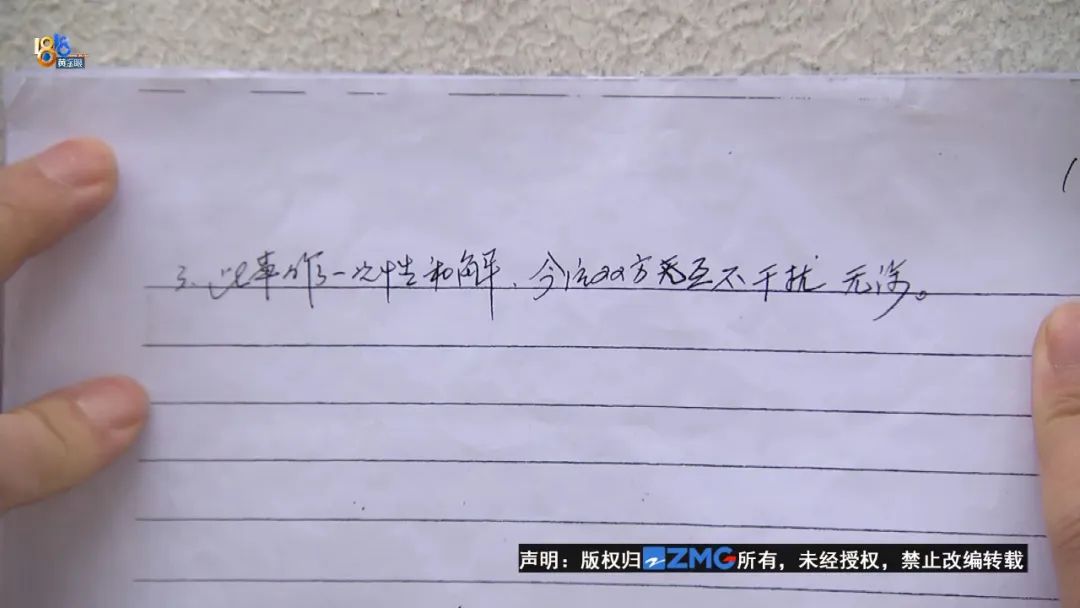 1818
黄金眼
3、此事作一次性和解、今后双方互不干扰 无涉。
声明：版权归ZMG所有，未经授权，禁止改编转载